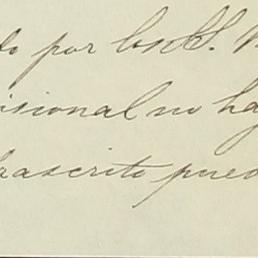 do por los S.S. M
visional no ha
rascrito pued